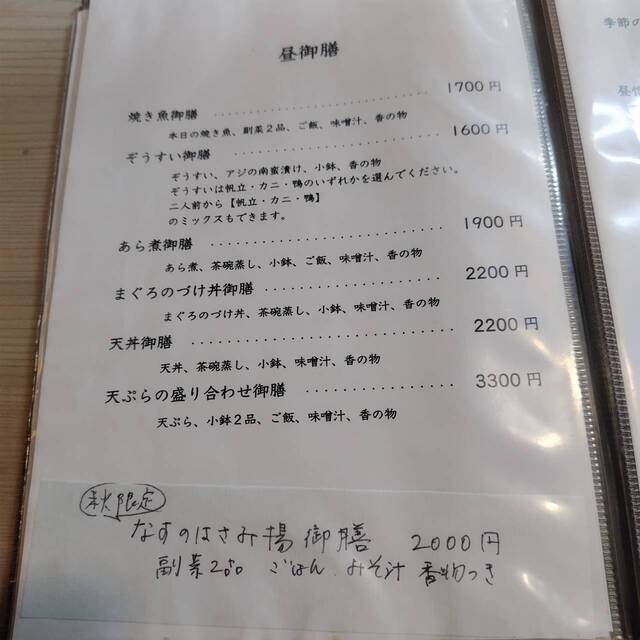 昼御膳
焼き魚御膳 1700円
本日の焼き魚、副菜2品、ご飯、味噌汁、香の物
ぞうすい御膳 1600円
ぞうすい、アジの南蛮漬け、小鉢、香の物
ぞうすいは帆立・カニ・鴨のいずれかを選んでください。
二人前から【帆立・カニ・鴨】
のミックスもできます。
あら煮御膳 1900円
あら煮、茶碗蒸し、小鉢、ご飯、味噌汁、香の物
まぐろのづけ丼御膳 2200円
まぐろのづけ丼、茶碗蒸し、小鉢、味噌汁、香の物
天丼御膳 2200円
天丼、茶碗蒸し、小鉢、味噌汁、香の物
天ぷらの盛り合わせ御膳 3300円
天ぷら、小鉢2品、ご飯、味噌汁、香の物
秋限定
なすのはさみ揚御膳 2000円
副菜2品 ごはん みそ汁 香物つき
季節の